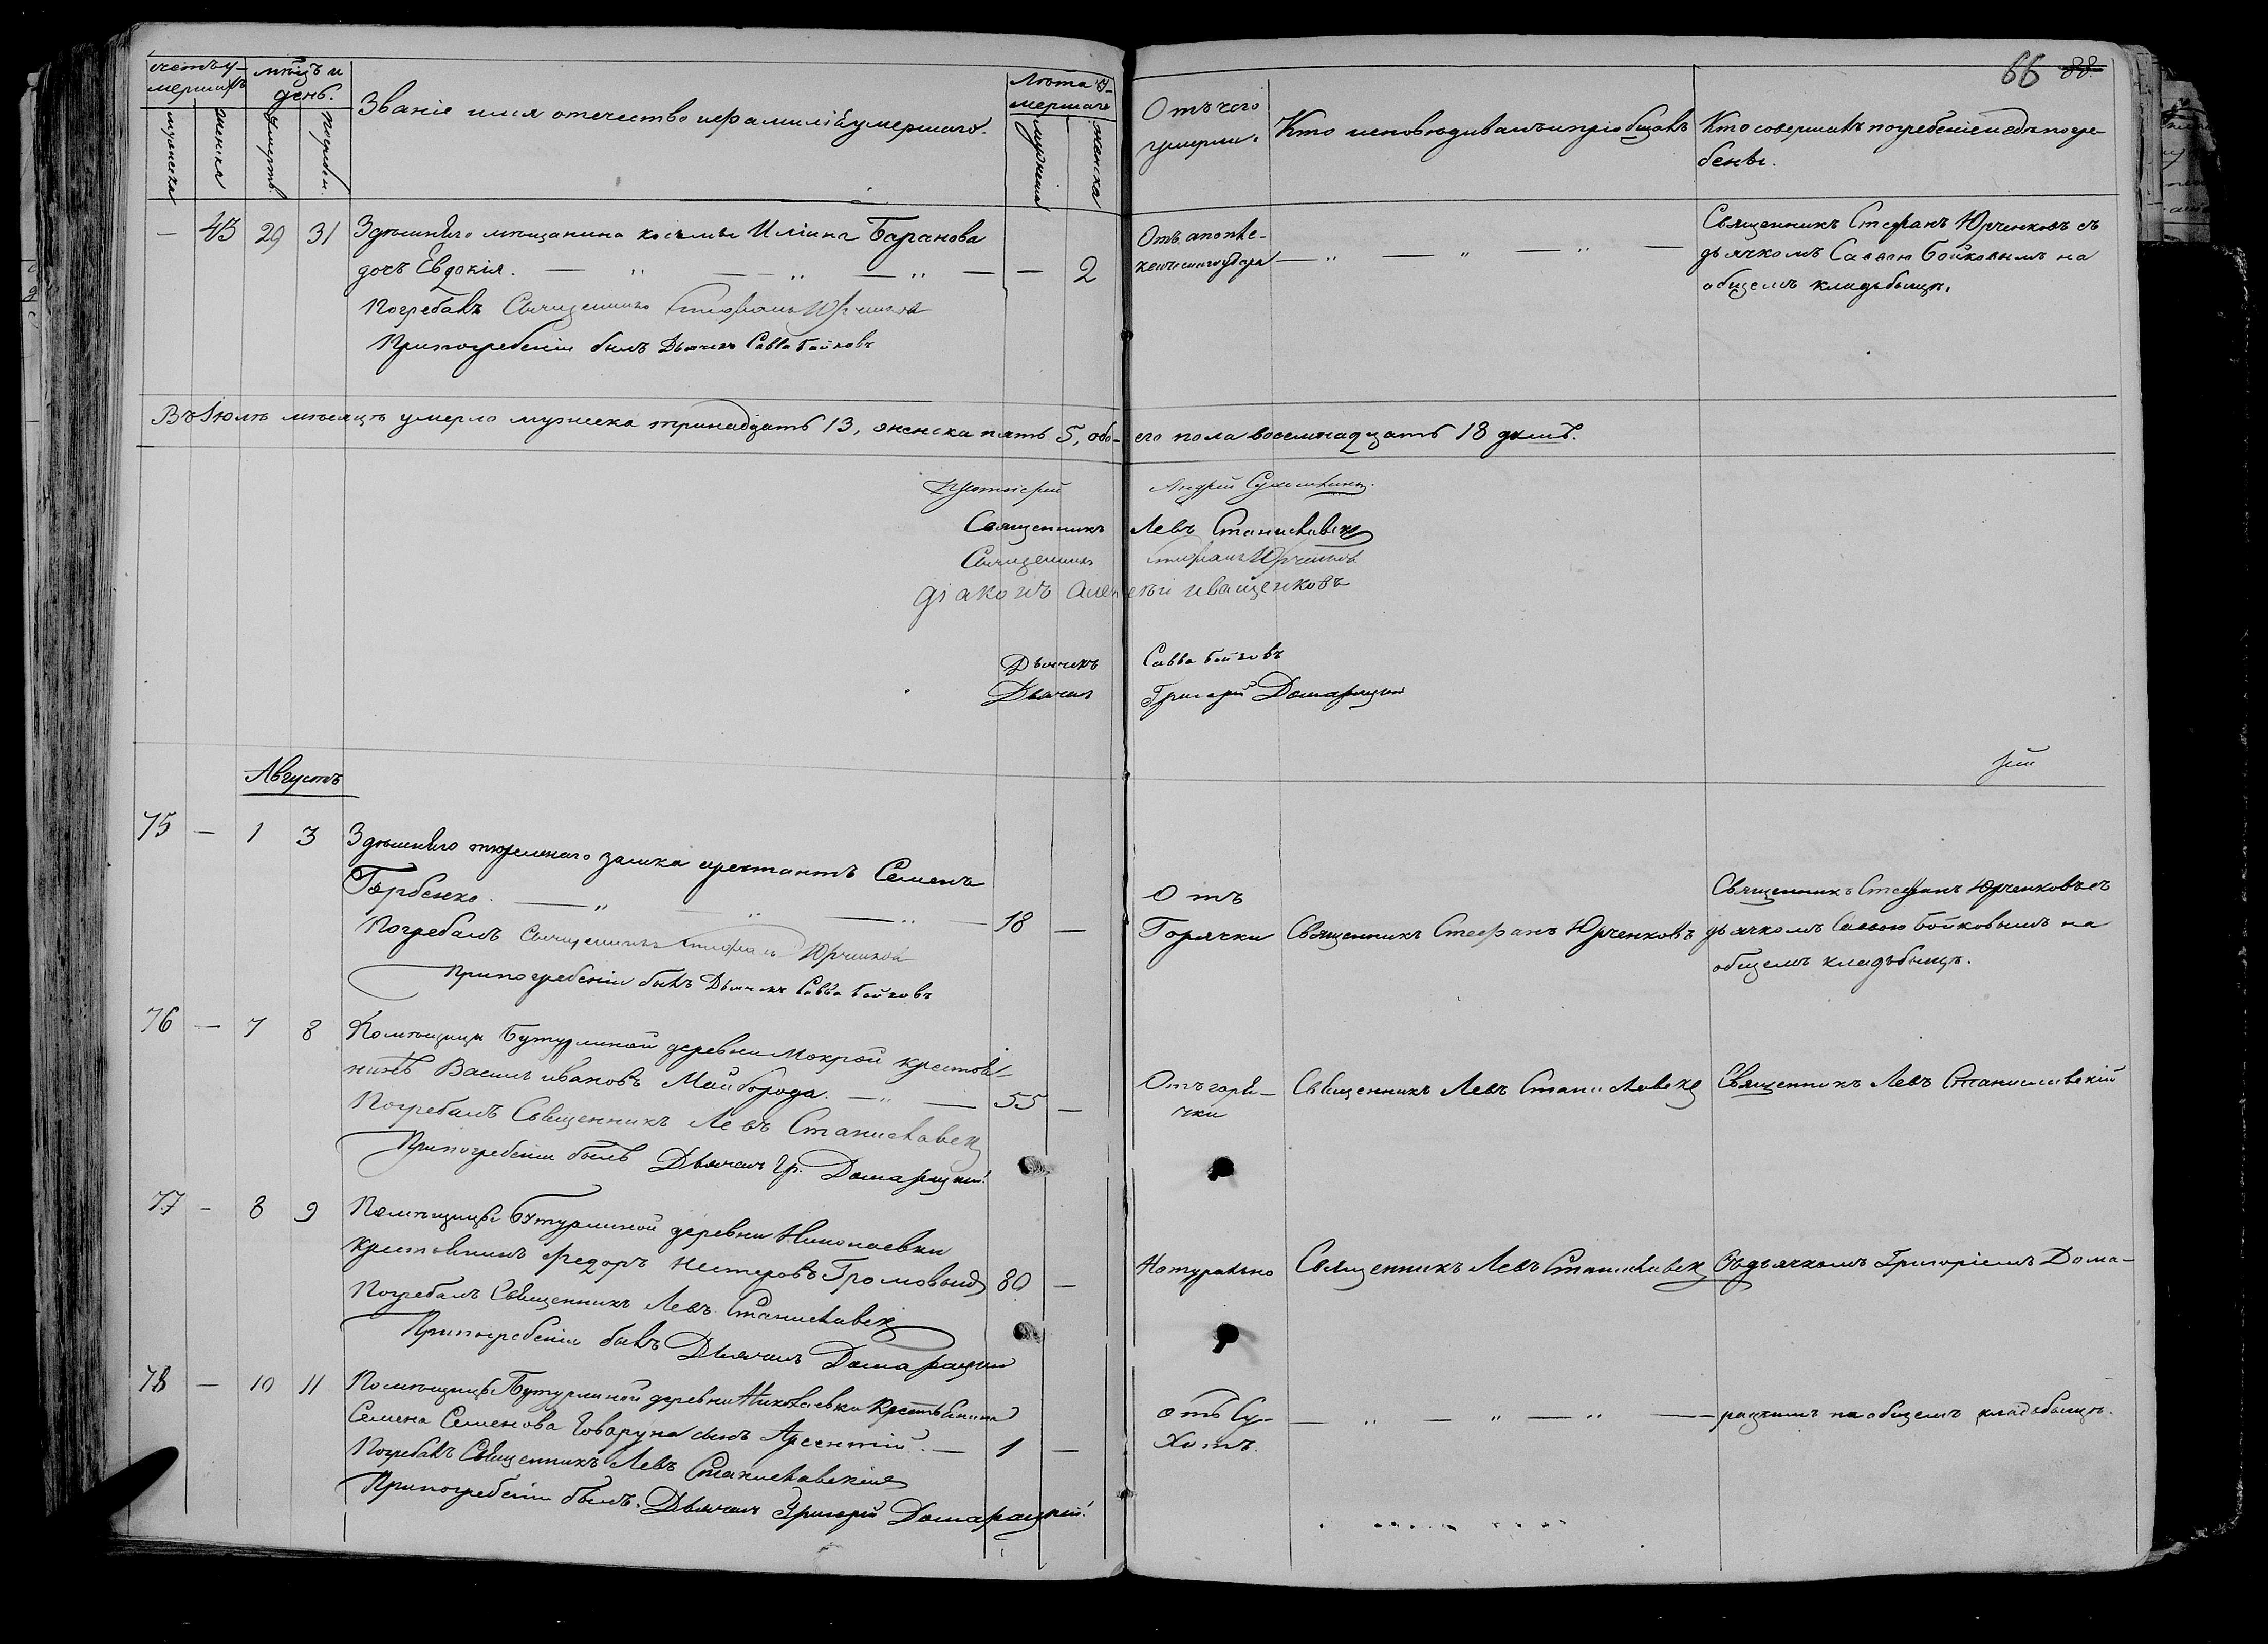 66 88.
счетъ у-
мершихъ
мѣсцъ и
день.
Званіе имя отечество и фамилія умершаго.
Лѣта у-
мершаго
Отъ чего
умерли.
Кто исповѣдивалъ и пріобщалъ
Кто совершалъ погребеніе и гдѣ погре-
бены.
мужеска
женска
умертв.
погребен.
мужеска
женска
— 43 29 31 Здѣшняго мѣщанина Косьмы Ильина Баранова
дочъ Евдокія. — — 2
Погребалъ Священникъ Стефанъ Юрченковъ
При погребеніи былъ Дьячекъ Савва Бойковъ
Отъ апопле-
ксическаго удара
Священникъ Стефанъ Юрченковъ съ
дьячкомъ Саввою Бойковымъ на
общемъ кладьбищѣ.
Въ Іюлѣ мѣсяцѣ умерло мужеска тринадцать 13, женска пять 5, обо-его пола восемнадцать 18 душъ.
Протоіерей Андрей
Священникъ Левъ Станиславскій
Священникъ Стефанъ Юрченковъ
діаконъ Алексѣй Иващенковъ
Дьячекъ Савва Бойковъ
Дьячекъ Григорій Домарацкій
Августъ
75 — 1 3 Здѣшняго тюремнаго замка арестантъ Семенъ
Горбенко. — 18 —
Погребалъ Священникъ Стефанъ Юрченковъ
При погребеніи былъ Дьячекъ Савва Бойковъ
Отъ
Горячки
Священникъ Стефанъ Юрченковъ
Священникъ Стефанъ Юрченковъ съ
дьячкомъ Саввою Бойковымъ на
общемъ кладьбищѣ.
76 — 7 8 Помѣщицы Бутурлиной деревни Мокрой крестья-
нинъ Василь Ивановъ Майборода. — 55 —
Погребалъ Священникъ Левъ Станиславскій
При погребеніи былъ Дьячекъ Гр. Домарацкій
Отъ горя-
чки
Священникъ Левъ Станиславскій
Священникъ Левъ Станиславскій
77 — 8 9 Помѣщицы Бутурлиной деревни Николаевки
крестьянинъ Федоръ Нестеровъ Громовый 80 —
Погребалъ Священникъ Левъ Станиславскій
При погребеніи былъ Дьячекъ Домарацкій
Натурально
Священникъ Левъ Станиславскій
Съ дьячкомъ Григоріемъ Дома-
78 — 10 11 Помѣщицы Бутурлиной деревни Николаевки крестьянина
Семена Семенова Говаруна сынъ Арсентій. — 1 —
Погребалъ Священникъ Левъ Станиславскій
При погребеніи былъ Дьячекъ Григорій Домарацкій
отъ Су-
хотъ.
рацкимъ на общемъ кладьбищѣ.